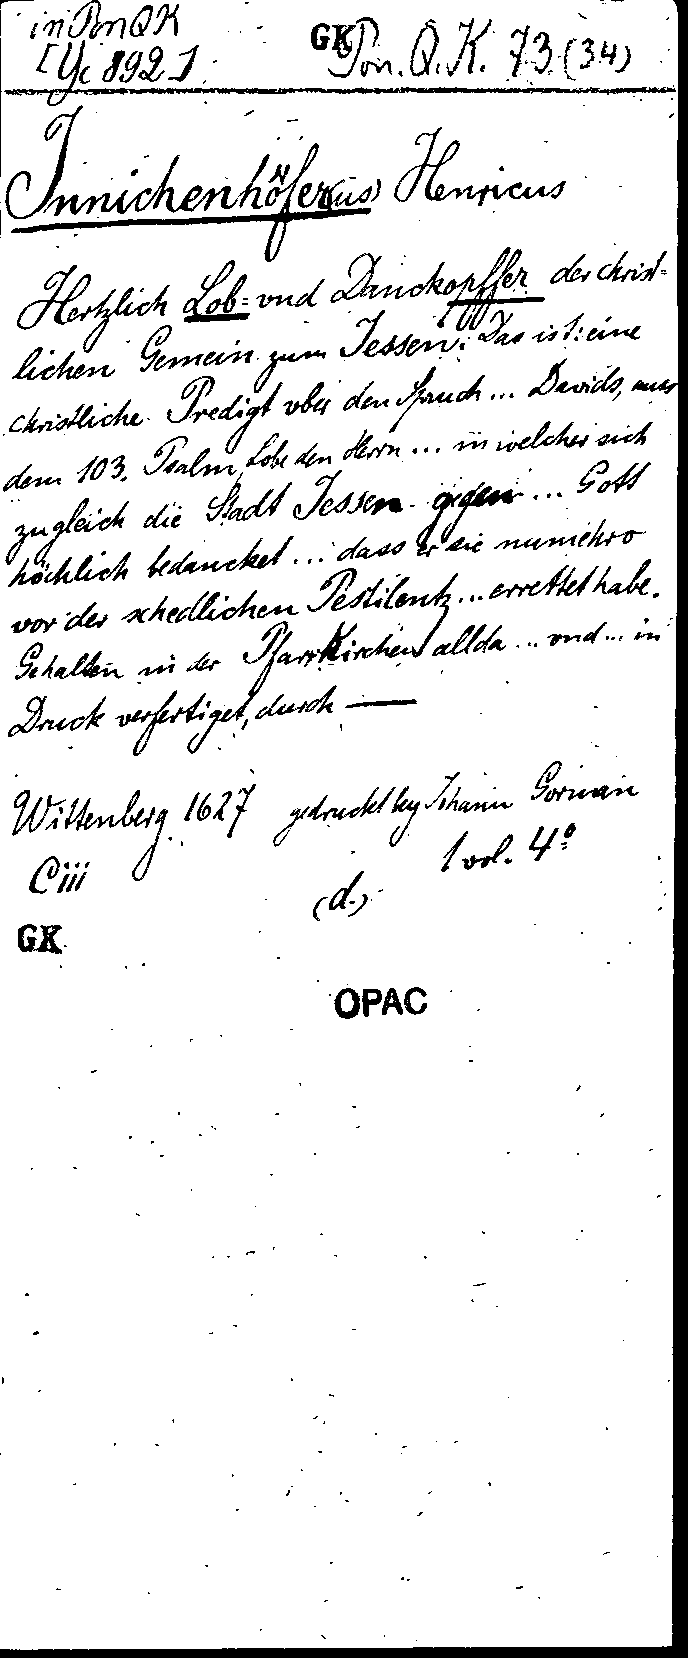 in Pon QK GK Pon. Q. K. 73. (34)
[Yc 892]
Innichenhöfer(us) Henricus
Hertzlich Lob= vnd Danckopffer der christ-
lichen Gemein zum Jessen. Das ist: eine
christliche Predigt vber den Spruch ... Davids, aus
dem 103. Psalm, Lobe den Herrn ... in welcher sich
zugleich die Stadt Jessen gegen ... Gott
höchlich bedancket ... dass er sie numehro
vor der schedlichen Pestilentz ... errettet habe.
Gehalten in der Pfarrkirchen allda ... vnd ... in
Druck verfertiget, durch —
Wittenberg 1627 gedruckt bey Johann Gorman
Ciii 1 vol. 4°
(d.)
GK
OPAC